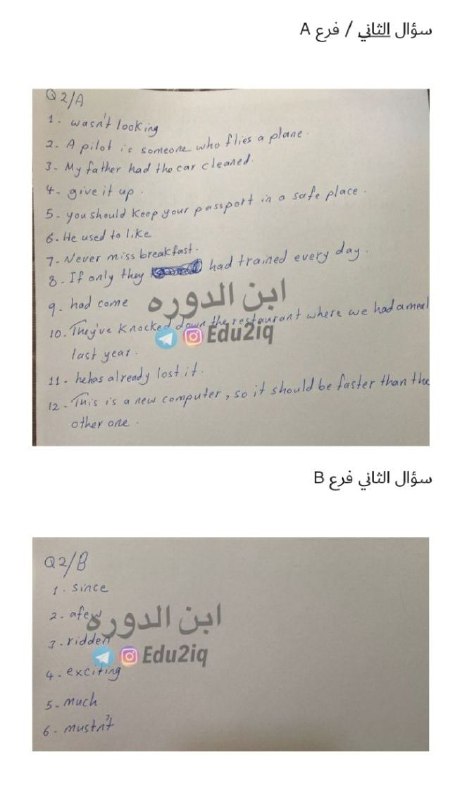 سؤال الثاني / فرع A
Q2/A
1- wasn't looking
2- A pilot is someone who flies a plane.
3- My father had the car cleaned.
4- give it up.
5- you should keep your passport in a safe place.
6- He used to like
7- Never miss breakfast.
8- If only they had trained every day.
9- had come
10- They've knocked down the restaurant where we had a meal
last year.
11- he has already lost it.
12- This is a new computer, so it should be faster than the
other one.
ابن الدوره
Edu2iq
سؤال الثاني فرع B
Q2/B
1- since
2- a few
3- ridden
4- exciting
5- much
6- mustn't
ابن الدوره
Edu2iq